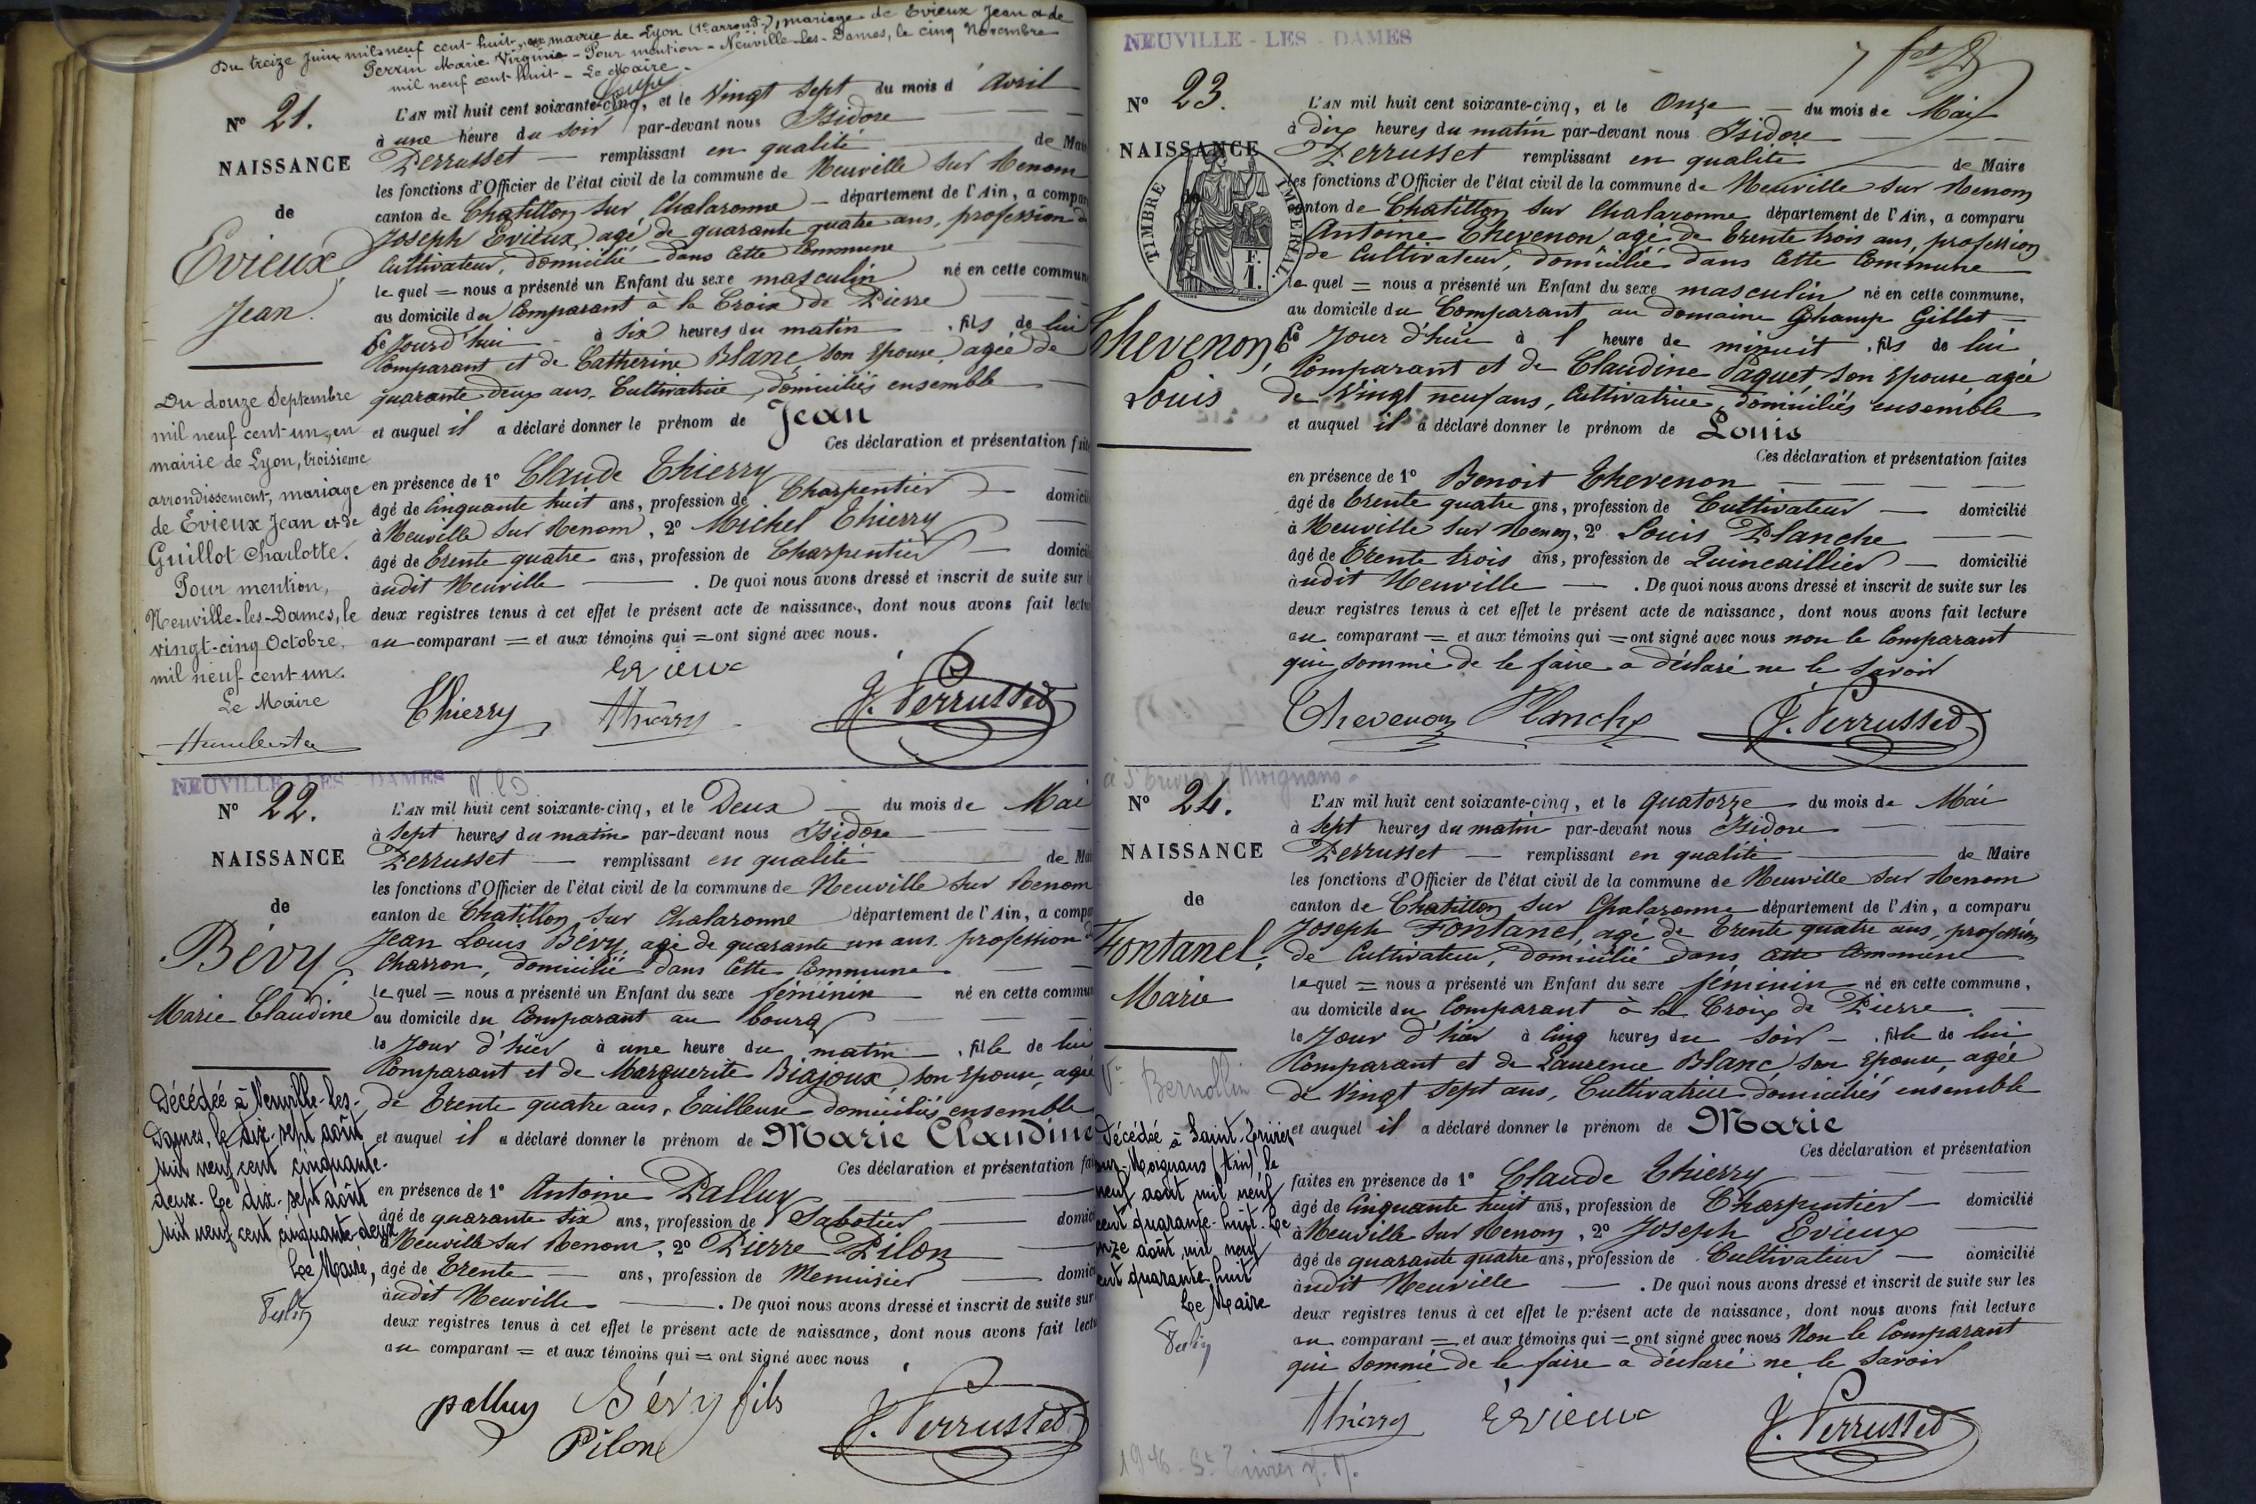 Du treize Juin mil neuf cent huit, en mairie de Lyon (1er arrond.), mariage de Evieux Jean & de
Perrin Marie Virginie - Pour mention - Neuville-les-Dames, le cinq Novembre
mil neuf cent huit - Le Maire -
N° 21.
NAISSANCE
de
Evieux
Jean.
L'AN mil huit cent soixante-cinq, et le Vingt sept du mois d'Avril
à une heure du soir par-devant nous Isidore
Perrusset remplissant en qualité de Mai
les fonctions d'Officier de l'état civil de la commune de Neuville sur Renom
canton de Chatillon sur Chalaronne département de l'Ain, a compar
Joseph Evieux, agé de quarante quatre ans, profession de
Cultivateur, domicilié dans cette Commune
le quel = nous a présenté un Enfant du sexe masculin né en cette commun
au domicile du Comparant à la Croix de Pierre
Ce Jourd'hui à six heures du matin, fils de lui
Comparant et de Catherine Blanc, son Epouse, agée de
quarante deux ans, Cultivatrice, domiciliés ensemble
et auquel il a déclaré donner le prénom de Jean
Ces déclaration et présentation faite
en présence de 1° Claude Thierry
âgé de Cinquante huit ans, profession de Charpentier domicili
à Neuville sur Renom, 2° Michel Thierry
âgé de Trente quatre ans, profession de Charpentier domicili
à udit Neuville . De quoi nous avons dressé et inscrit de suite sur l
deux registres tenus à cet effet le présent acte de naissance, dont nous avons fait lectu
au comparant = et aux témoins qui = ont signé avec nous.
Evieux
Thierry Thierry J. Perrusset
Du douze Septembre
mil neuf cent un, en
mairie de Lyon, troisième
arrondissement, mariage
de Evieux Jean et de
Guillot Charlotte.
Pour mention,
Neuville-les-Dames, le
vingt-cinq Octobre
mil neuf cent un.
Le Maire
NEUVILLE - LES - DAMES
N° 22.
NAISSANCE
de
Bévy
Marie Claudine
L'AN mil huit cent soixante-cinq, et le Deux du mois de Mai
à Sept heures du matin par-devant nous Isidore
Perrusset remplissant en qualité de Mai
les fonctions d'Officier de l'état civil de la commune de Neuville sur Renom
canton de Chatillon sur Chalaronne département de l'Ain, a compar
Jean Louis Bévy, agé de quarante un ans, profession d
Charron, domicilié dans cette Commune
le quel = nous a présenté un Enfant du sexe féminin né en cette commun
au domicile du Comparant au bourg
le Jour d'hier à une heure du matin, fille de lui
Comparant et de Marguerite Biajoux, son Epouse, agée
de Trente quatre ans, Tailleuse domiciliés ensemble
et auquel il a déclaré donner le prénom de Marie Claudine
Ces déclaration et présentation fai
en présence de 1° Antoine Palluy
âgé de quarante six ans, profession de Sabotier domici
à Neuville sur Renom, 2° Pierre Pilon
âgé de Trente ans, profession de Menuisier domici
à udit Neuville . De quoi nous avons dressé et inscrit de suite sur
deux registres tenus à cet effet le présent acte de naissance, dont nous avons fait lectu
au comparant = et aux témoins qui = ont signé avec nous
palluy Bévy fils
Pilone J. Perrusset
Décédée à Neuville-les-
Dames, le dix-sept août
mil neuf cent cinquante-
deux. Le dix-sept août
mil neuf cent cinquante-deux
Le Maire,
NEUVILLE - LES - DAMES
N° 23.
NAISSANCE
de
TIMBRE IMPERIAL.
F. 1.
Thevenon,
Louis
L'AN mil huit cent soixante-cinq, et le Onze du mois de Mai
à dix heures du matin par-devant nous Isidore
Perrusset remplissant en qualité de Maire
les fonctions d'Officier de l'état civil de la commune de Neuville sur Renom
canton de Chatillon sur Chalaronne département de l'Ain, a comparu
Antoine Thevenon agé de Trente trois ans, profession
de Cultivateur, domicilié dans cette Commune
le quel = nous a présenté un Enfant du sexe masculin né en cette commune,
au domicile du Comparant au domaine Champ Gillet
Ce Jour d'hui à l heure de minuit, fils de lui
Comparant et de Claudine Paquet son Epouse agée
de Vingt neuf ans, Cultivatrice, domiciliés ensemble
et auquel il a déclaré donner le prénom de Louis
Ces déclaration et présentation faites
en présence de 1° Benoit Thevenon
âgé de Trente quatre ans, profession de Cultivateur domicilié
à Neuville sur Renom, 2° Louis Planche
âgé de Trente trois ans, profession de Quincaillier domicilié
à udit Neuville . De quoi nous avons dressé et inscrit de suite sur les
deux registres tenus à cet effet le présent acte de naissance, dont nous avons fait lecture
au comparant = et aux témoins qui = ont signé avec nous non le Comparant
qui sommé de le faire a déclaré ne le savoir
Thevenon Planche J. Perrusset
N° 24.
NAISSANCE
de
Fontanel,
Marie
L'AN mil huit cent soixante-cinq, et le quatorze du mois de Mai
à Sept heures du matin par-devant nous Isidore
Perrusset remplissant en qualité de Maire
les fonctions d'Officier de l'état civil de la commune de Neuville sur Renom
canton de Chatillon sur Chalaronne département de l'Ain, a comparu
Joseph Fontanel, agé de Trente quatre ans, profession
de Cultivateur, domicilié dans cette Commune
le quel = nous a présenté un Enfant du sexe féminin né en cette commune,
au domicile du Comparant à la Croix de Pierre
le Jour d'hier à Cinq heures du soir, fille de lui
Comparant et de Laurence Blanc, son Epouse, agée
de Vingt sept ans, Cultivatrice domiciliés ensemble
et auquel il a déclaré donner le prénom de Marie
Ces déclaration et présentation
faites en présence de 1° Claude Thierry
âgé de Cinquante huit ans, profession de Charpentier domicilié
à Neuville sur Renom, 2° Joseph Evieux
âgé de quarante quatre ans, profession de Cultivateur domicilié
à udit Neuville . De quoi nous avons dressé et inscrit de suite sur les
deux registres tenus à cet effet le présent acte de naissance, dont nous avons fait lecture
au comparant = et aux témoins qui = ont signé avec nous Non le Comparant
qui sommé de le faire a déclaré ne le savoir
Thierry Evieux J. Perrusset
Vve Bernollin
Décédée à Saint-Trivier
sur-Moignans (Ain), le
neuf août mil neuf
cent quarante-huit. Le
onze août mil neuf
cent quarante huit
Le Maire